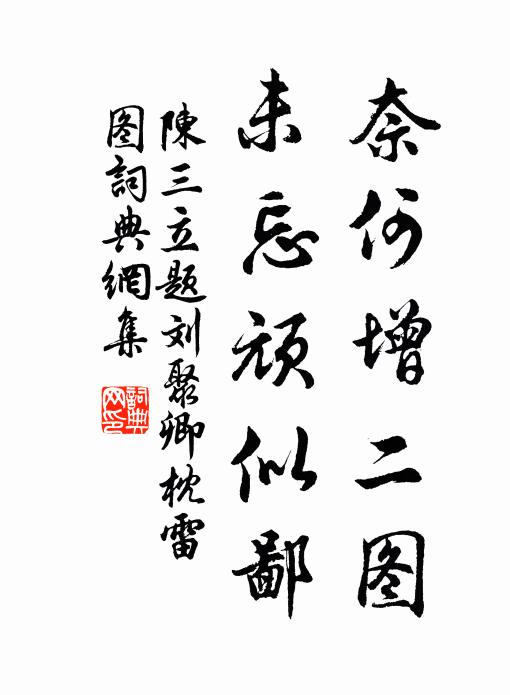 奈何增二图
未忘顽似鄙
陳三立题刘聚卿枕雷
图詞典網集
詞典
网印